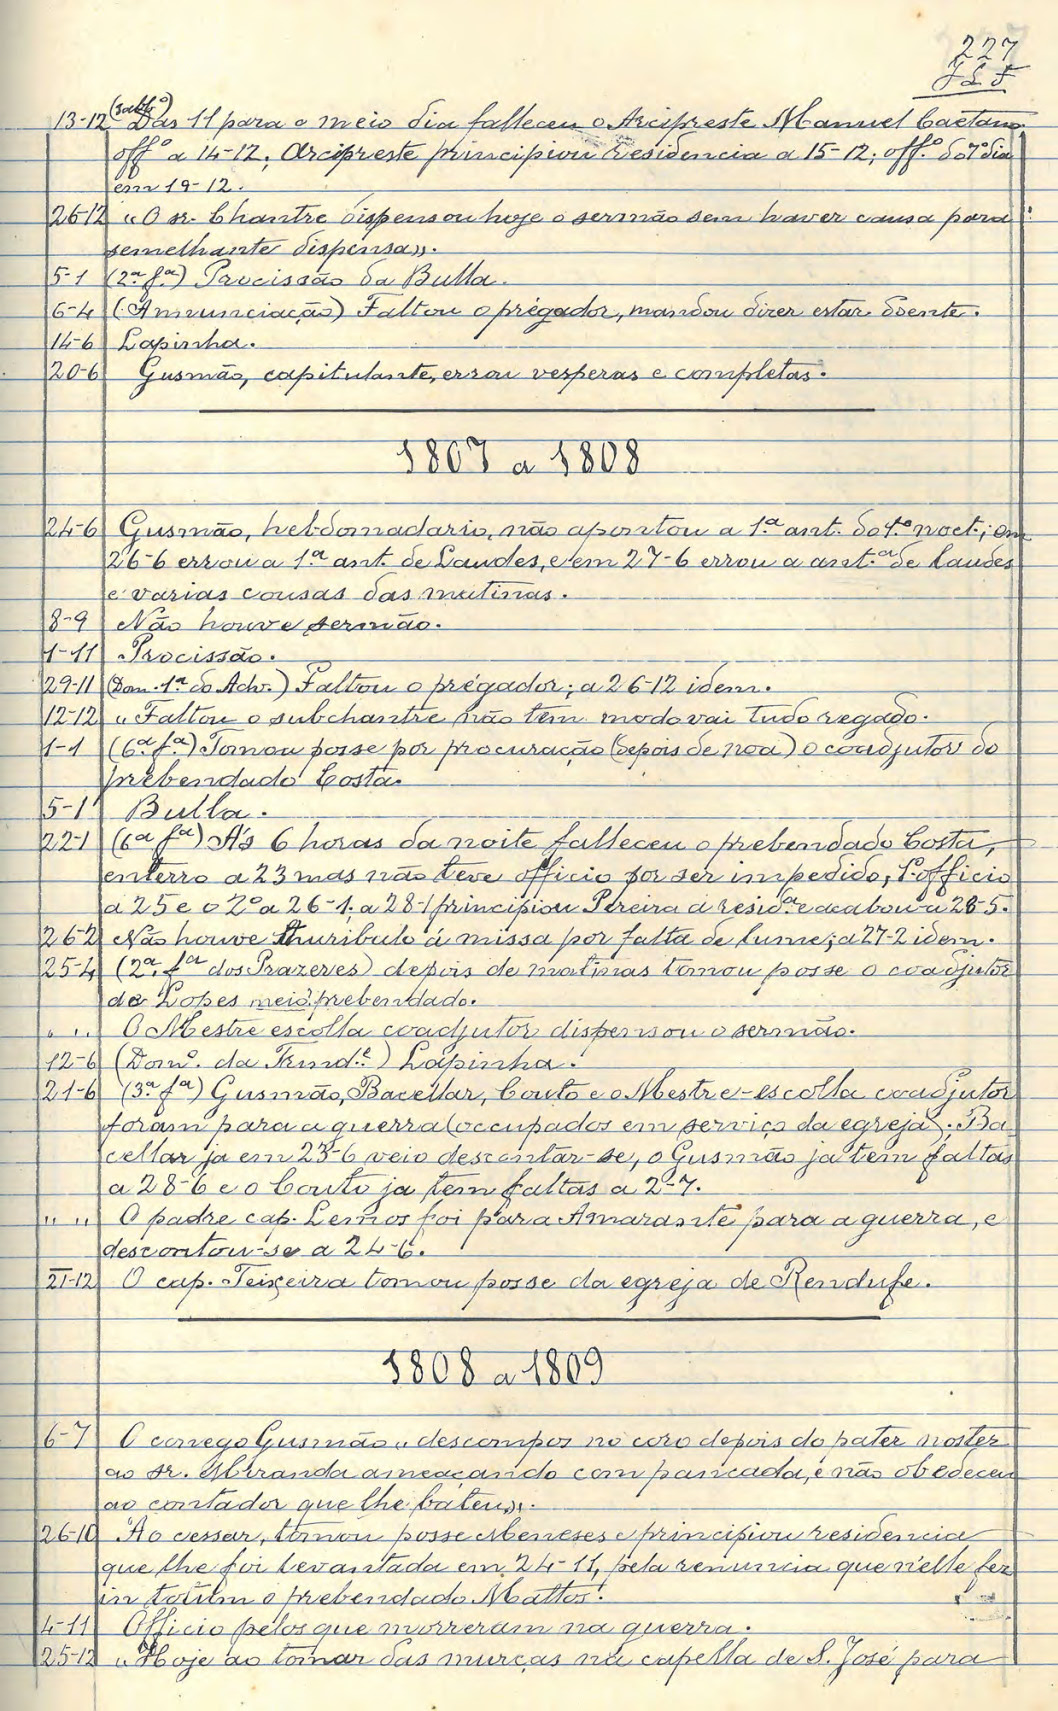 227
J L F
13-12 (sabb.º) Das 11 para o meio dia falleceu o Arcipreste Manuel Caetano.
off.º a 14-12; Arcipreste principiou residencia a 15-12; off.º do 7º dia
em 19-12.
26-12 "O sr. Chantre dispensou hoje o sermão sem haver causa para
semelhante dispensa".
5-1 (2.ª f.ª) Procissão da Bulla.
6-4 (Annunciação) Faltou o prégador, mandou dizer estar doente.
14-6 Lapinha.
20-6 Gusmão, capitulante, errou vesperas e completas.
1807 a 1808
24-6 Gusmão, hebdomadario, não apontou a 1.ª ant. do 1.º noct.; em
26-6 errou a 1.ª ant. de Laudes, e em 27-6 errou a ant.ª de laudes
e varias cousas das matinas.
8-9 Não houve sermão.
1-11 Procissão.
29-11 (Dom. 1.ª do Adv.) Faltou o prégador; a 26-12 idem.
12-12 "Faltou o subchantre não tem modo vai tudo regado.
1-1 (6.ª f.ª) Tomou posse por procuração (depois de noa) o coadjutor do
prebendado Costa.
5-1 Bulla.
22-1 (6ª fª) A's 6 horas da noite falleceu o prebendado Costa,
enterro a 23 mas não teve officio por ser impedido; 1º officio
a 25 e o 2º a 26-1; a 28-1 principiou Pereira a resid.ª e acabou-a 28-5.
26-2 Não houve thuribulo á missa por falta de lume; a 27-2 idem.
25-4 (2ª. fª dos Prazeres) depois de matinas tomou posse o coadjutor
do Lopes meio prebendado.
" " O Mestre escolla coadjutor dispensou o sermão.
12-6 (Domº. da Trind.e) Lapinha.
21-6 (3.ª fª) Gusmão, Bacellar, Couto e o Mestre-escolla coadjutor
foram para a guerra (occupados em serviço da egreja). Ba-
cellar ja em 23-6 veio descontar-se, o Gusmão ja tem faltas
a 28-6 e o Couto ja tem faltas a 2-7.
" " O padre cap. Lemos foi para Amarante para a guerra, e
descontou-se a 24-6.
21-12 O cap. Teixeira tomou posse da egreja de Rendufe.
1808 a 1809
6-7 O conego Gusmão "descompos no coro depois do pater noster
ao sr. Miranda ameaçando com pancada, e não obedeceu
ao contador que lhe bateu".
26-10 Ao cessar, tomou posse Meneses e principiou residencia
que lhe foi levantada em 24-11, pela renuncia que n'elle fez
in totum o prebendado Mattos.
4-11 Officio pelos que morreram na guerra.
25-12 "Hoje ao tomar das murças na capella de S. José para